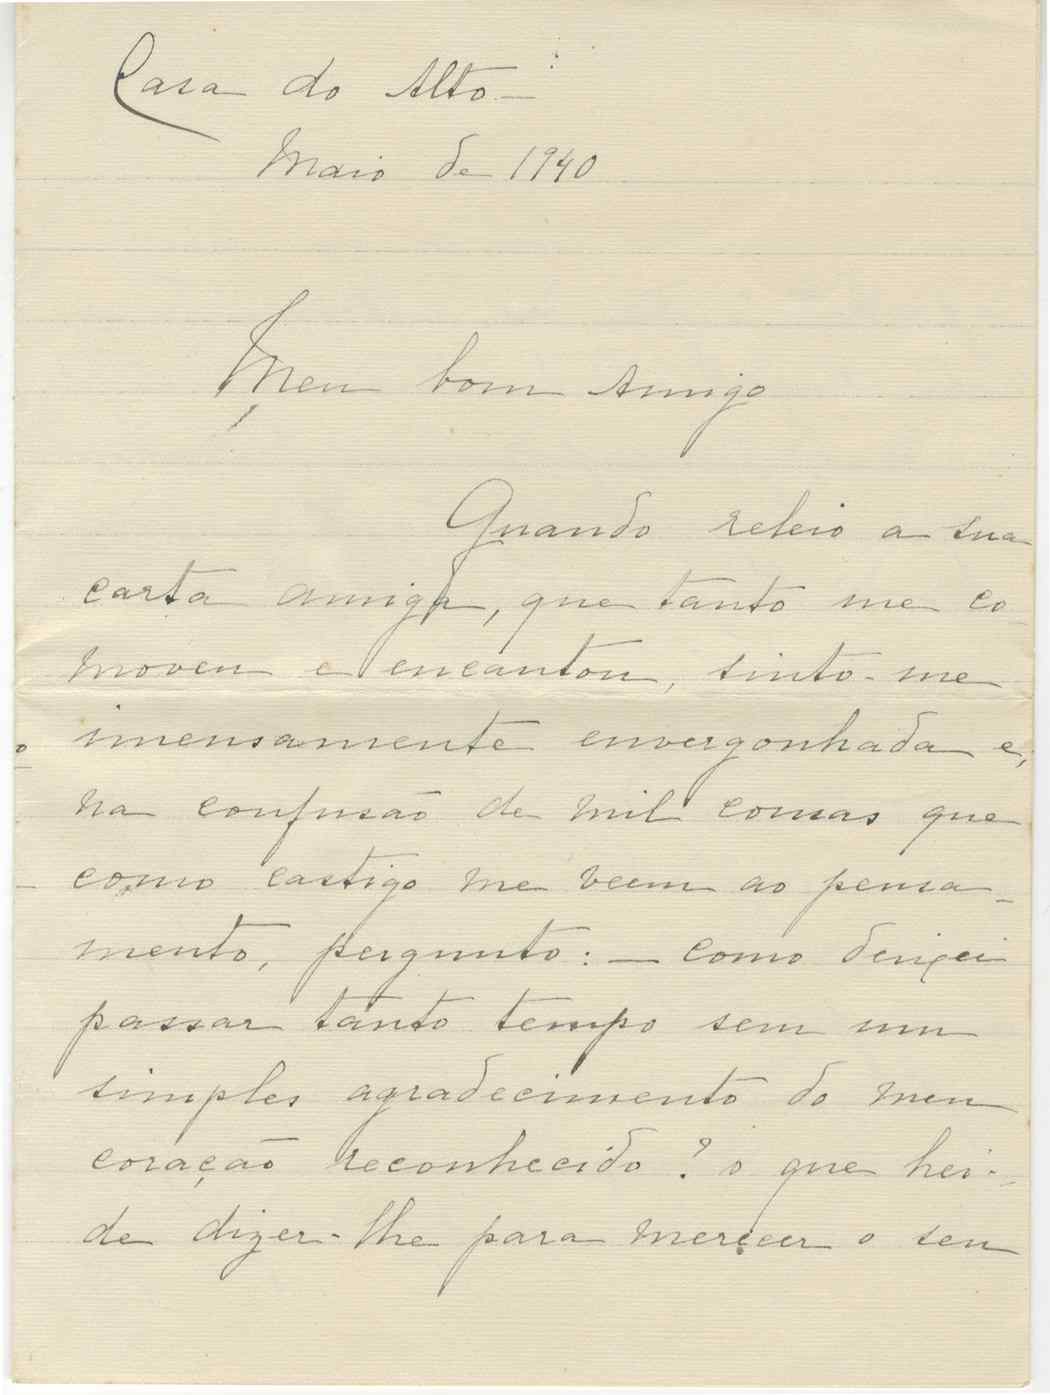 Casa do Alto —
Maio de 1940
Meu bom Amigo
Quando releio a sua
carta amiga, que tanto me co-
moveu e encantou, sinto-me
imensamente envergonhada e,
na confusão de mil cousas que
como castigo me veem ao pensa-
mento, pergunto: — como deixei
passar tanto tempo sem um
simples agradecimento do meu
coração reconhecido? o que hei-
de dizer-lhe para merecer o seu